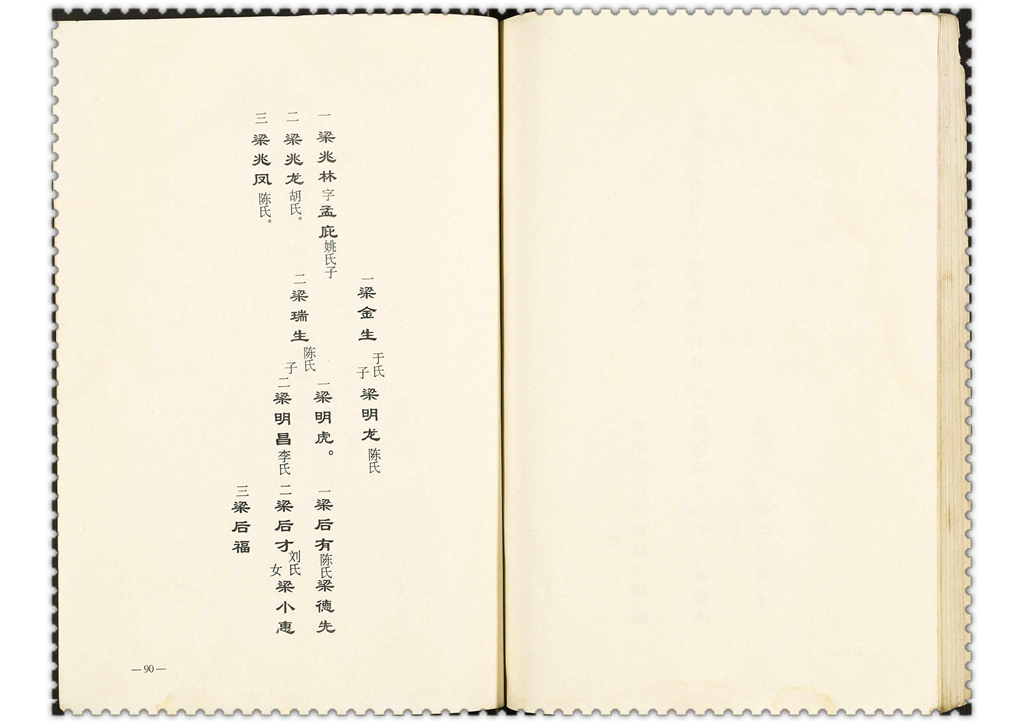 一梁兆林字孟庇姚氏子
二梁兆龙胡氏。
三梁兆凤陈氏。
一梁金生于氏子梁明龙陈氏
二梁瑞生陈氏子
一梁明虎。
二梁明昌李氏
一梁后有陈氏梁德先
二梁后才刘氏女梁小惠
三梁后福
—90—